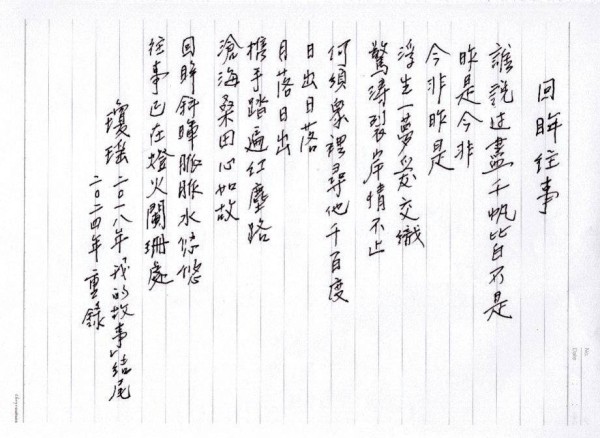 回眸往事
誰說过盡千帆皆不是
昨是今非
今非昨是
浮生一夢愛交織
驚濤裂岸情不止
何須衆裡尋他千百度
日出日落
月落日出
携手踏遍红塵路
滄海桑田心如故
回眸斜暉脈脈水悠悠
往事已在燈火闌珊處
瓊瑤 二〇一八年「我的故事」結尾
二〇二四年 重錄
No.
Date